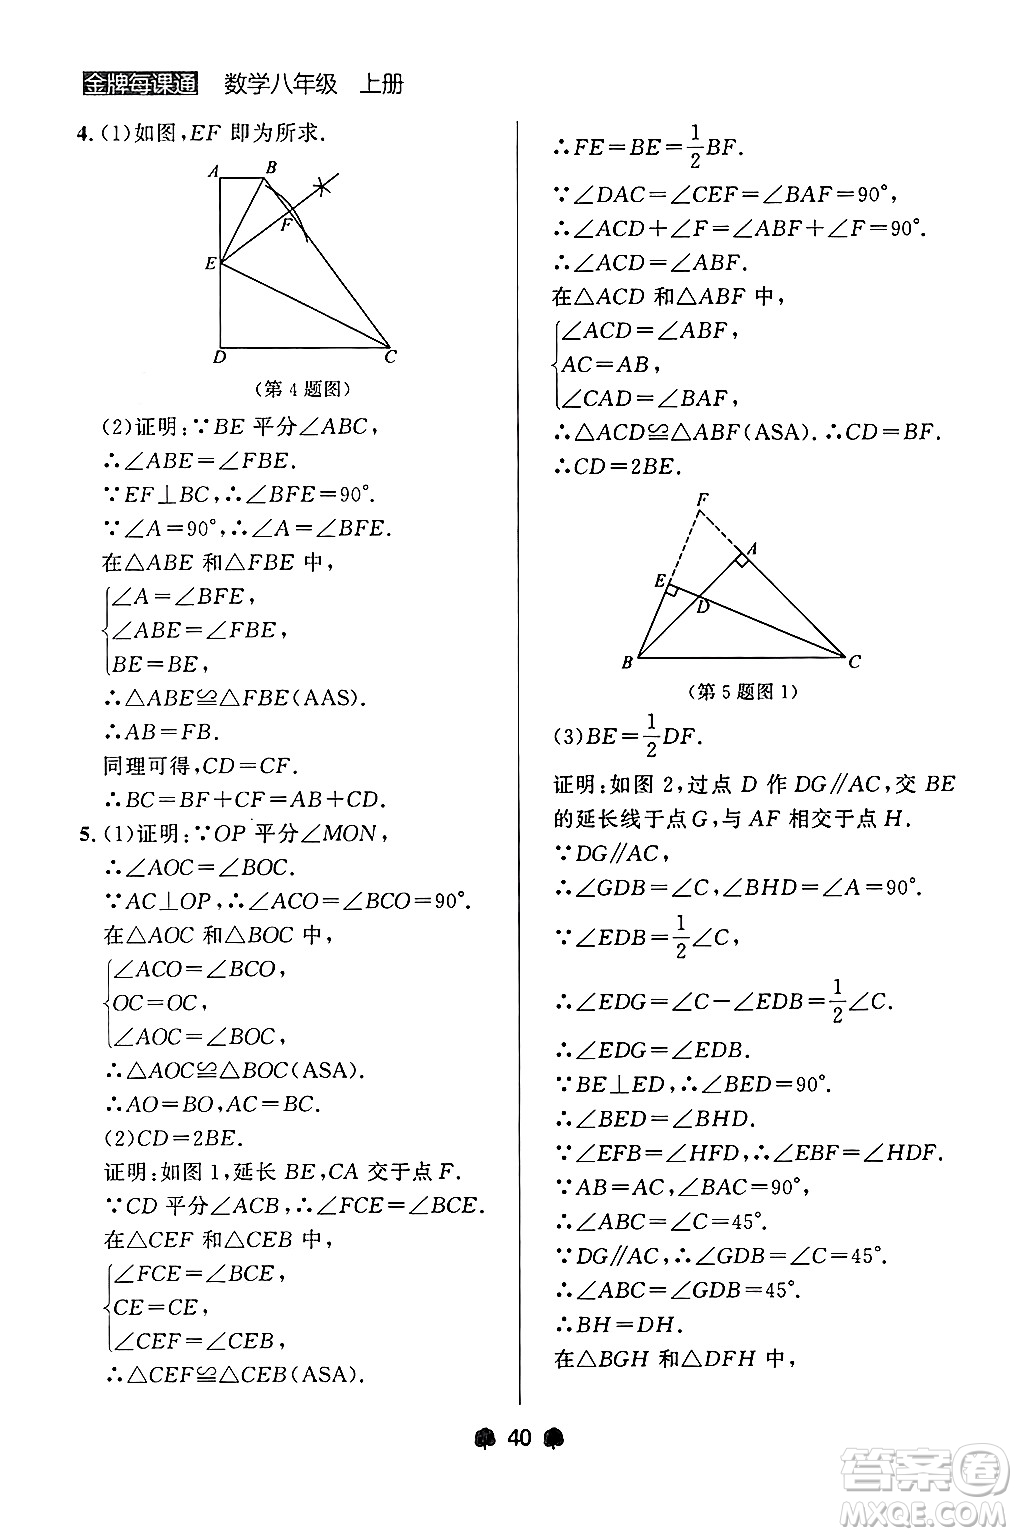 金牌每课通 数学八年级 上册
4.(1)如图,EF 即为所求.
A
B
F
E
D
C
(第 4 题图)
(2)证明:∵BE 平分∠ABC,
∴∠ABE=∠FBE.
∵EF⊥BC,∴∠BFE=90°.
∵∠A=90°,∴∠A=∠BFE.
在△ABE 和△FBE 中,
∠A=∠BFE,
∠ABE=∠FBE,
BE=BE,
∴△ABE≌△FBE(AAS).
∴AB=FB.
同理可得,CD=CF.
∴BC=BF+CF=AB+CD.
5.(1)证明:∵OP 平分∠MON,
∴∠AOC=∠BOC.
∵AC⊥OP,∴∠ACO=∠BCO=90°.
在△AOC 和△BOC 中,
∠ACO=∠BCO,
OC=OC,
∠AOC=∠BOC,
∴△AOC≌△BOC(ASA).
∴AO=BO,AC=BC.
(2)CD=2BE.
证明:如图 1,延长 BE,CA 交于点 F.
∵CD 平分∠ACB,∴∠FCE=∠BCE.
在△CEF 和△CEB 中,
∠FCE=∠BCE,
CE=CE,
∠CEF=∠CEB,
∴△CEF≌△CEB(ASA).
∴FE=BE=1/2BF.
∵∠DAC=∠CEF=∠BAF=90°,
∴∠ACD+∠F=∠ABF+∠F=90°.
∴∠ACD=∠ABF.
在△ACD 和△ABF 中,
∠ACD=∠ABF,
AC=AB,
∠CAD=∠BAF,
∴△ACD≌△ABF(ASA).∴CD=BF.
∴CD=2BE.
F
A
E
D
B
C
(第 5 题图 1)
(3)BE=1/2DF.
证明:如图 2,过点 D 作 DG∥AC,交 BE
的延长线于点 G,与 AF 相交于点 H.
∵DG∥AC,
∴∠GDB=∠C,∠BHD=∠A=90°.
∵∠EDB=1/2∠C,
∴∠EDG=∠C−∠EDB=1/2∠C.
∴∠EDG=∠EDB.
∵BE⊥ED,∴∠BED=90°.
∴∠BED=∠BHD.
∵∠EFB=∠HFD,∴∠EBF=∠HDF.
∵AB=AC,∠BAC=90°,
∴∠ABC=∠C=45°.
∵DG∥AC,∴∠GDB=∠C=45°.
∴∠ABC=∠GDB=45°.
∴BH=DH.
在△BGH 和△DFH 中,
40
答案圈
MXQE.COM